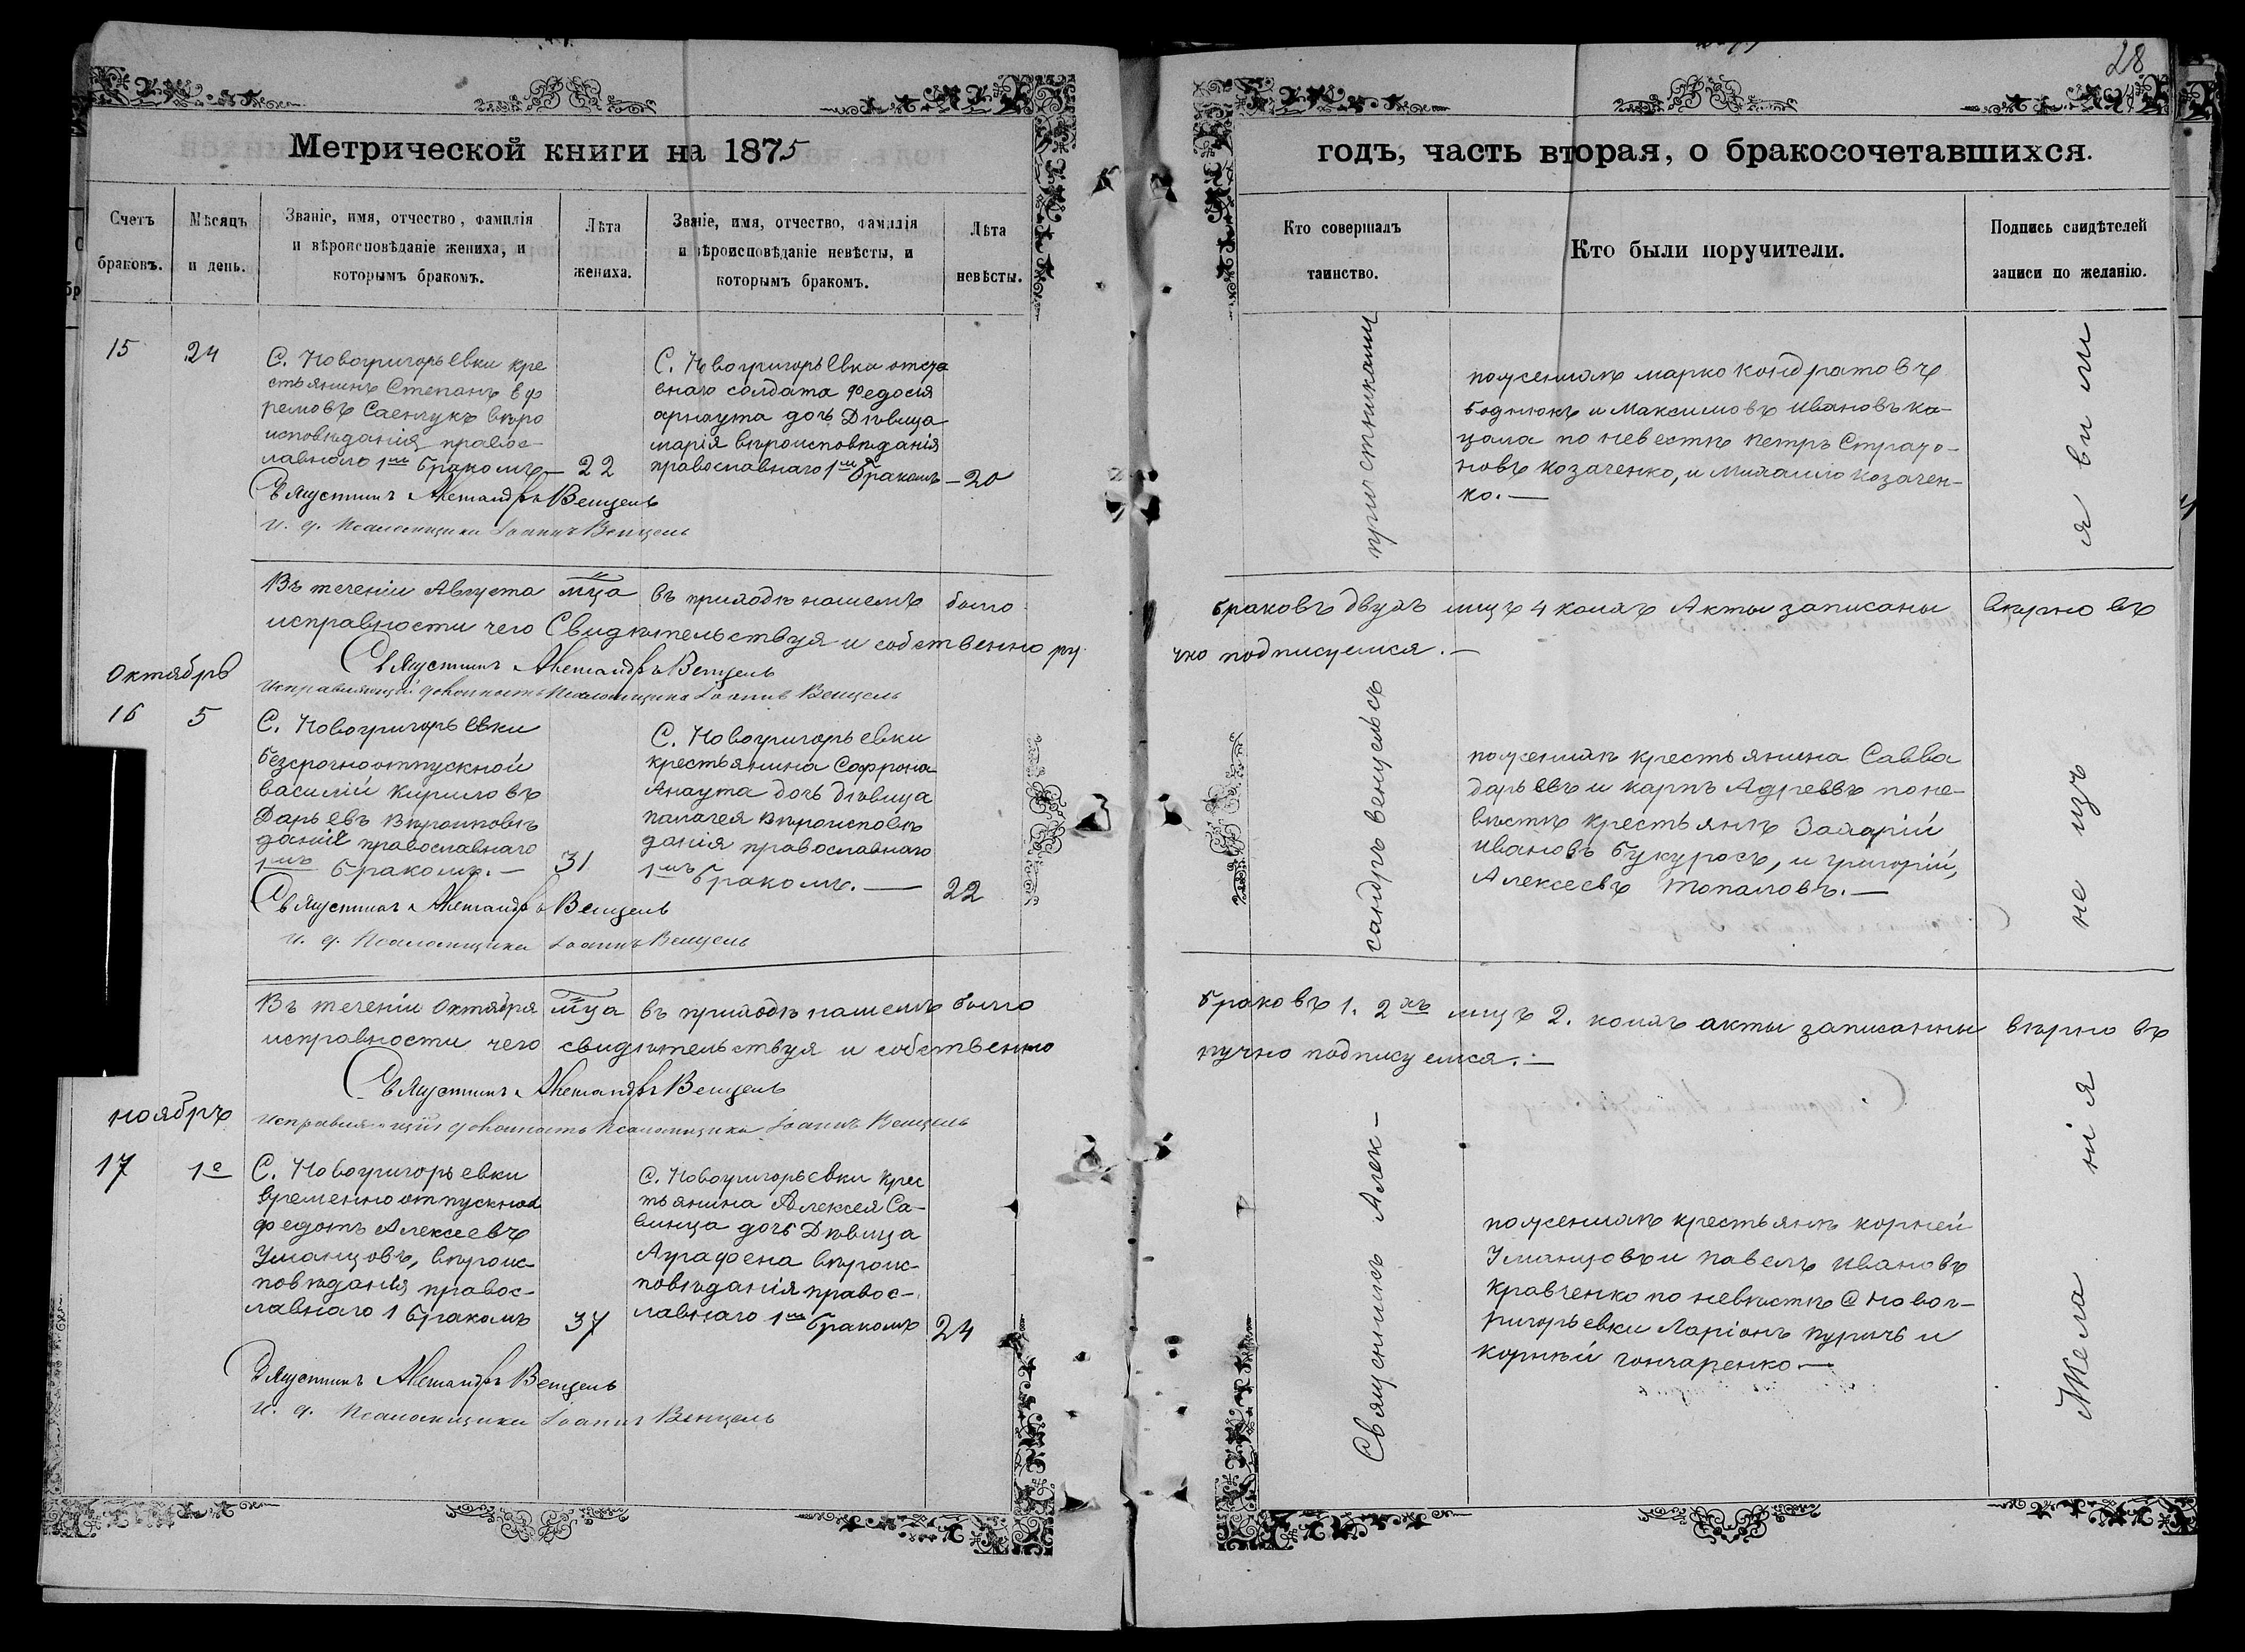 28
Метрической книги на 1875
годъ, часть вторая, о бракосочетавшихся.
Счетъ браковъ.
Мѣсяцъ и день.
Званіе, имя, отчество, фамилія
и вѣроисповѣданіе жениха, и
которымъ бракомъ.
Лѣта
жениха.
Званіе, имя, отчество, фамилія
и вѣроисповѣданіе невѣсты, и
которымъ бракомъ.
Лѣта
невѣсты.
Кто совершалъ
таинство.
Кто были поручители.
Подпись свидѣтелей
записи по желанію.
15
24
С. Новогригорьевки кре
стьянинъ Степанъ Еф
ремовъ Саенчукъ вѣро
исповѣданія правос-
лавнаго 1мъ бракомъ — 22
С. Новогригорьевки отста
внаго солдата Федосія
арнаута дочь Дѣвица
марія вѣроисповѣданія
православнаго 1мъ бракомъ — 20
Александръ Венцель
И. д. Псаломщика Іоаннъ Венцель
по женихѣ марко кондратовъ
боднюкъ и Максимовъ Ивановъ ка-
цала по невестѣ петръ
новъ козаченко, и Михаило козачен-
ко. —
Въ теченіи Августа мца въ приходѣ нашемъ было
браковъ двухъ лицъ 4 коихъ Акты записаны вѣрно въ
исправности чего Свидѣтельствуя и собственно ру
чно подписуемся. —
Александръ Венцель
Исправляющій должность Псаломщика Іоаннъ Венцель
Октябрь
16
5
С. Новогригорьевки
безсрочноотпускной
василій кириловъ
Дарьевъ вѣроисповѣ
даніе православнаго
1мъ бракомъ. — 31
С. Новогригорьевки
крестьянина Софрона
Анаута дочь дѣвица
палагея вѣроисповѣ
данія православнаго
1мъ бракомъ. — 22
Александръ Венцель
И. д. Псаломщика Іоаннъ Венцель
по женихѣ крестьянина Савва
дарьевъ и карпъ Адреевъ по не-
вѣстѣ крестьянѣ Захарій
ивановъ букуросъ, и григорій,
Алексеевъ топаловъ. —
Въ теченіи Октября мца въ приходѣ нашемъ было
браковъ 1. 2хъ лицъ 2. коихъ акты записанны вѣрно въ
исправности чего свидѣтельствуя и собственно
ручно подписуемся. —
Александръ Венцель
Исправляющій должность Псаломщика Іоаннъ Венцель
ноябръ
17
1е
С. Новогригорьевки
временноотпускной
федотъ Алексеевъ
Уманцовъ, вѣроис-
повѣданія правос-
лавнаго 1 бракомъ 37
С. Новогригорьевки крес
тьянина Алексея Са-
винца дочь Дѣвица
Аграфена вѣроис-
повѣданія правос-
лавнаго 1мъ бракомъ 24
Александръ Венцель
И. д. Псаломщика Іоаннъ Венцель
по женихѣ крестьянѣ корней
Уманцовъ и павелъ ивановъ
Кравченко по невѣстѣ С новог-
ригорьевки Ларіонъ пуричъ и
корнѣй гончаренко —
Священникъ Алек-
сандръ венцель съ
причетниками
Жела
нія
не изъ
я ви ли